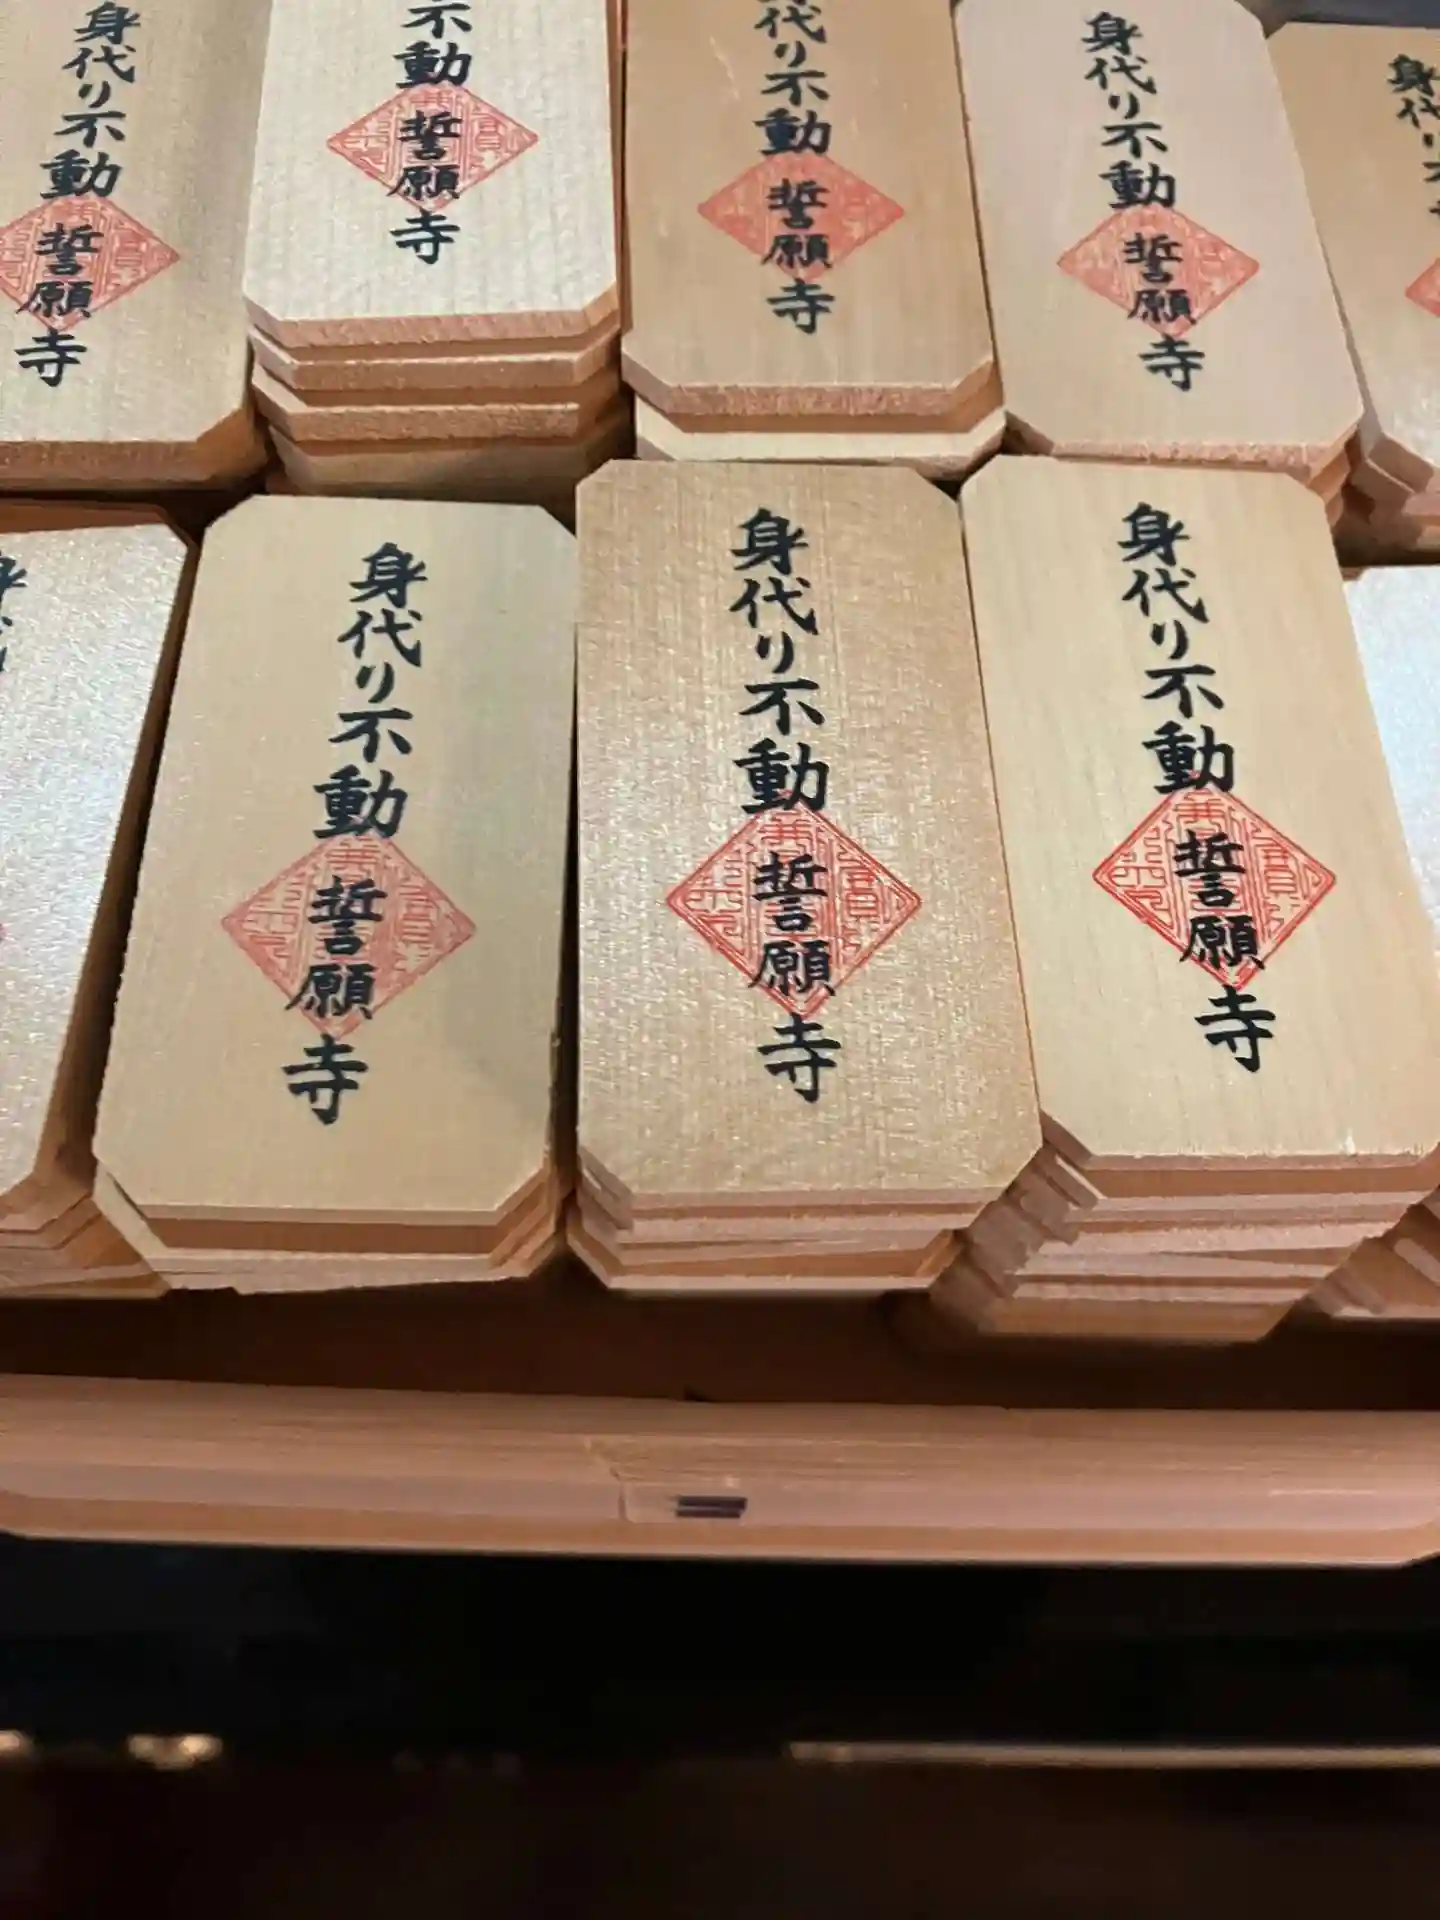 身代り不動 誓願寺
不動 誓願寺
身代り不動 誓願寺
身代り不動 誓願寺
身代
身代り不動 誓願寺
身代り不動 誓願寺
身代り不動 誓願寺